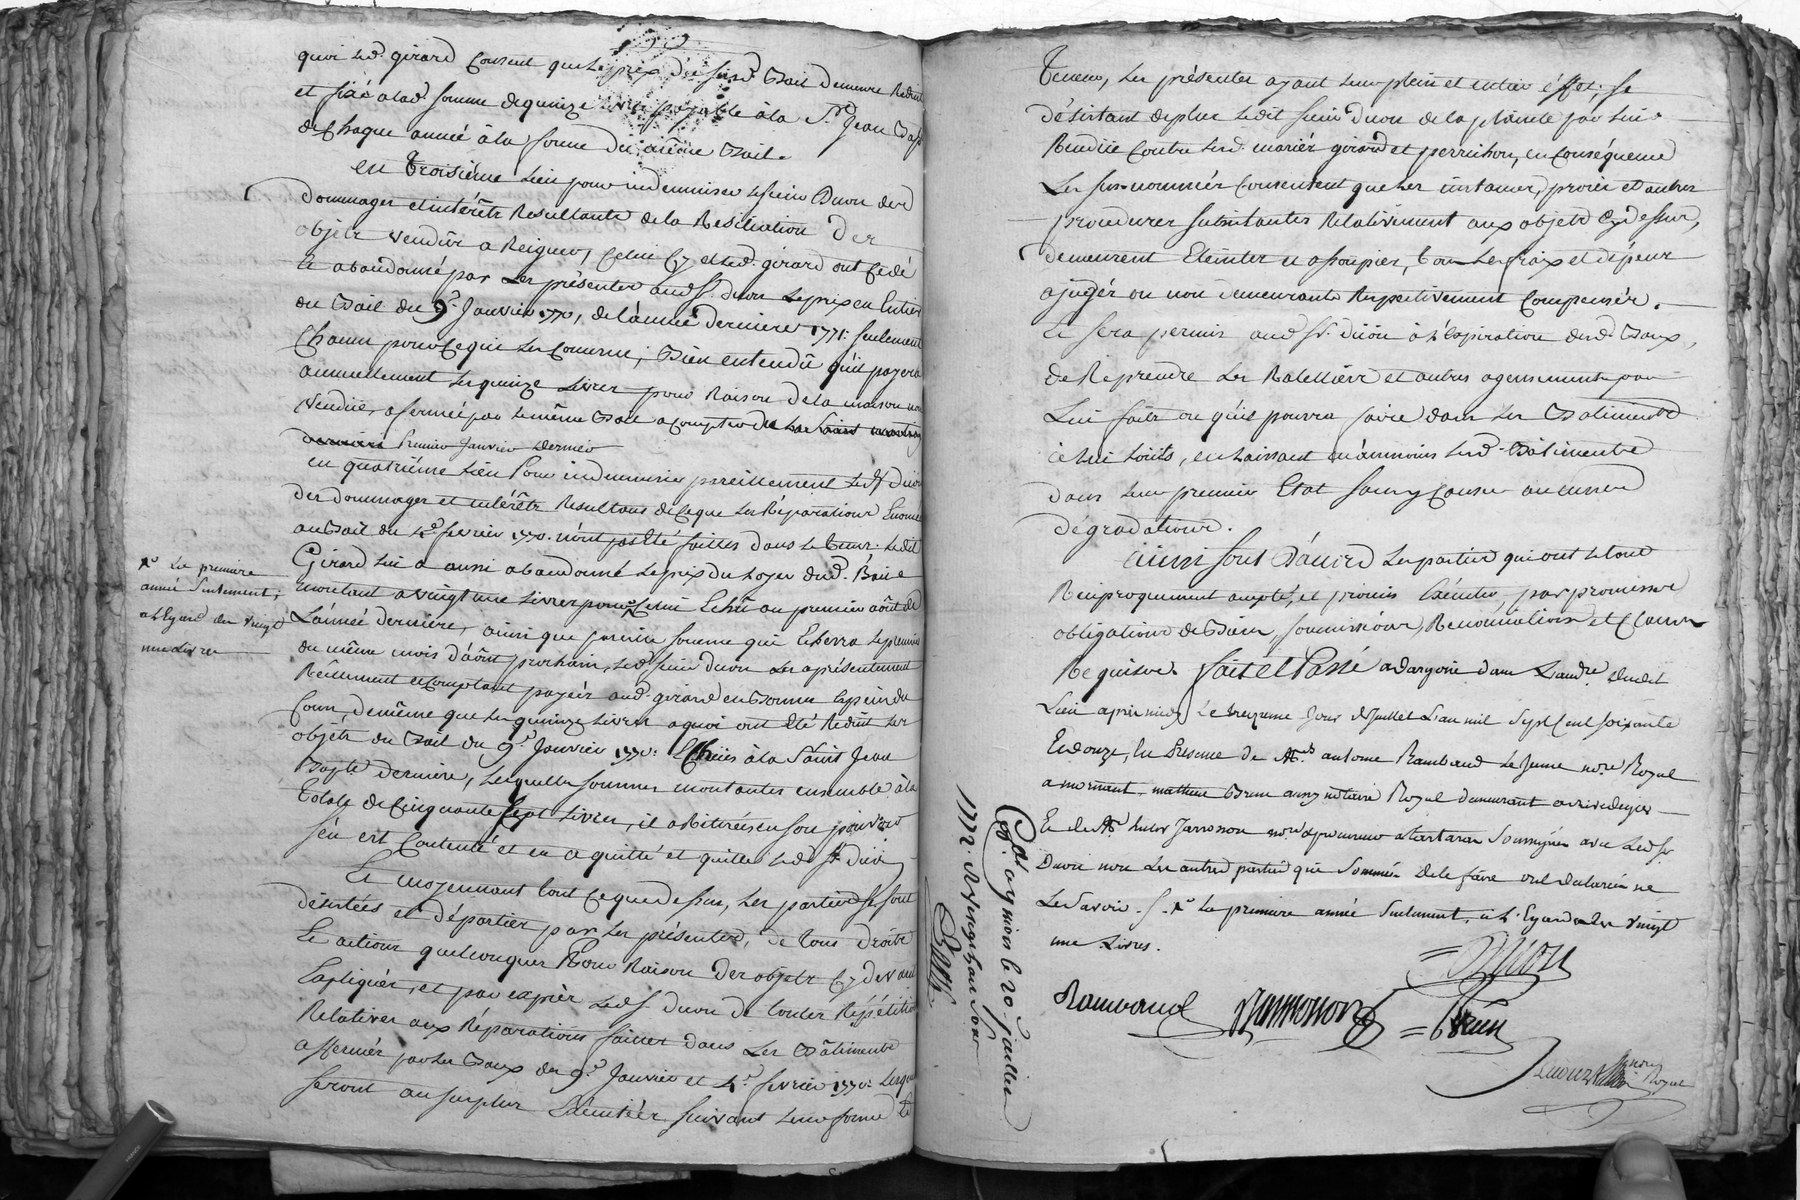 quoi led. girard Consent que le prix du susd. Bail demeure Reduit
et fixé a lad. somme de quinze livres payable à la St. Jean Bapt
de Chaque année à la forme du même Bail.
en Troisième Lieu pour indemniser le sieur Duon desd
dommages et intérêts Resultants de la Resiliation des
objets vendûs a Reigner, Celui Cy et led. girard ont Cedé
et abandonné par Les présentes aud. Sr. duon Le prix en Entier
du Bail du 9e. Janvier 1770, de l'année derniere 1771. seulement
Chacun pour Ce qui Les Concerne; Bien entendû qu'il payera
annuellement Les quinze Livres pour Raison de la maison non
Vendüe, afermée par le même Bail a Compter du
Premier Janvier dernier
en quatriéme Lieu Pour indemniser pareillement led. Sr duon
des dommages et intérêts Resultans de Ce que Les Réparations
au Bail du 4e. fevrier 1770. n'ont pas Eté faittes dans le tems. Ledit
Girard Lui a aussi abandonné Le prix du Loyer dud. Bail
montant a vingt une Livres pour Celui Echû au premier aôut de
L'année derniere, ainsi que pareille somme qui Echerra Le premier
du même mois d'aôut prochain, Led. sieur duon Les a présentement
Réellement Comptant payées aud. girard en Bonnes Espèces du
Cours, de même que Les quinze Livres a quoi ont été Reduit Les
objets du Bail du 9e. Janvier 1770. Echües à la Saint Jean
Bapte. derniere, Lesquelles sommes montantes ensemble à la
Totale de Cinquante sept Livres, il a Retirées en son pouvoir
s'en est Contenté et en a quitté et quitte led. Sr. duon
Et moyennant tout Ce que dessus, Les parties se sont
désistées et départies par Les présentes, de tous droits
Et actions quelconques Pour Raison des objets Cy devant
Expliqués, et par exprès led. S. duon de toutes Répétitions
Relatives aux Réparations faittes dans Les Bâtiments
affermés par Les Baux des 9e. Janvier et 4e. fevrier 1770. Lesquels
seront au surplus Exécutés suivant Leur forme Et
La premiere
année Seulement,
a L'Egard des vingt
une Livres
Teneur, Les présentes ayant Leur plein et entier éffet; se
désistant de plus Ledit sieur duon de la plainte par Lui
Rendüe Contre Lesd. mariés girard et perrichon, en Conséquence
Les sus-nommés Consentent que Les instances, procès et autres
procedures subsistantes Relativement aux objets Cy dessus,
demeurent Eteintes et assoupies, tous Les fraix et dépens
ajugés ou non demeurants Respectivement Compensés.
Et sera permis aud. Sr. duon à L'Expiration desd. Baux,
de Reprendre Les Ratelliers et autres agencements par
Lui faits ou qu'il pourra faire dans Les Batiments
en Laissant néanmoins Lesd. Bâtiments
dans Leur premier Etat sans y Causer aucunes
dégradations.
ainsi sont d'accord Les parties qui ont Le tout
Réciproquement accepté, et promis Exécuter par promesses
obligations de Biens, soumissions, Renonciations et Clauses
Requises. fait et Passé a dargoire dans L'audre. dudit
Lieu après midy Le treizieme Jour de Juillet L'an mil Sept Cent soixante
Et douze, En Présence de Me. antoine Rambaud Le Jeune nore. Royal
a mornant, mathieu Brun aussy notaire Royal demeurant a rivedegier
Et de Me. Jarrosson nore. Soussignés avec Led. Sr
Duon non Les autres parties qui Sommées de le faire ont declarées ne
Le Savoir. La premiere année Seulement, a L'Egard des vingt
une Livres.
Duon
Rambaud Jarrosson Brun
nore Royal
Cont. a mornt. le 20. Juillet
1772.